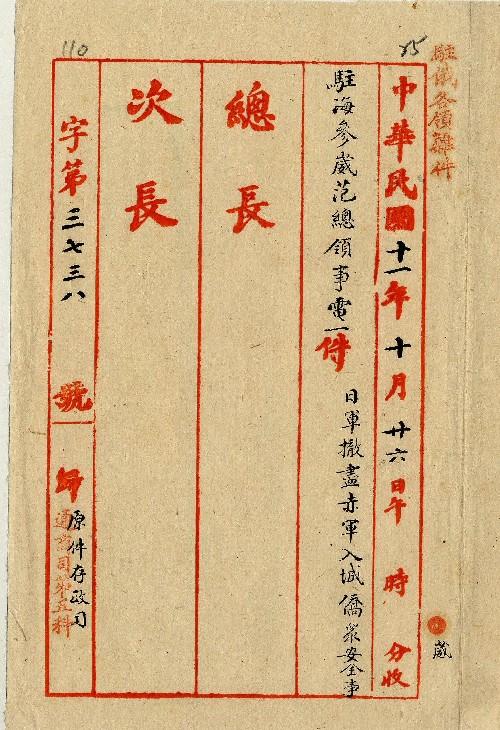 駐俄各領雜件
中華民國十一年十月廿六日午 時 分收
崴
駐海參崴范總領事電一件
日軍撤盡赤軍入城僑衆安全事
總長
次長
字第三七三八號
歸
通商司第五科
原件存政司
35
110